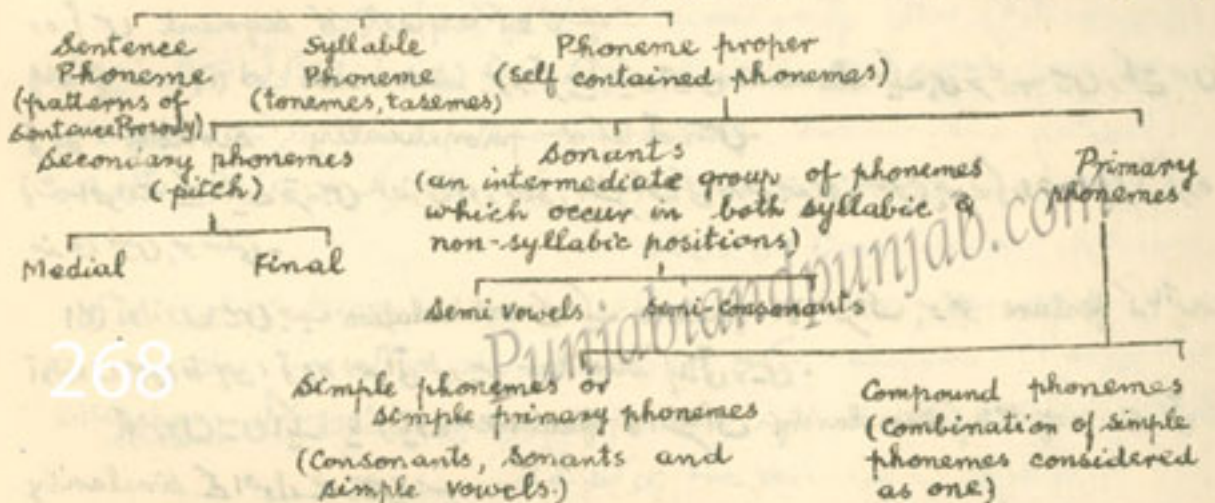 Sentence Phoneme (patterns of Sentence Prosody)
Syllable Phoneme (tonemes, tasemes)
Phoneme proper (Self contained phonemes)
Secondary phonemes (pitch)
Sonants (an intermediate group of phonemes which occur in both syllabic & non-syllabic positions)
Primary phonemes
Medial
Final
Semi vowels
Semi-Consonants
Punjabiandpunjab.com
268
Simple phonemes or
Simple primary phonemes
(Consonants, Sonants and
Simple vowels.)
Compound phonemes
(Combination of simple
phonemes considered
as one)